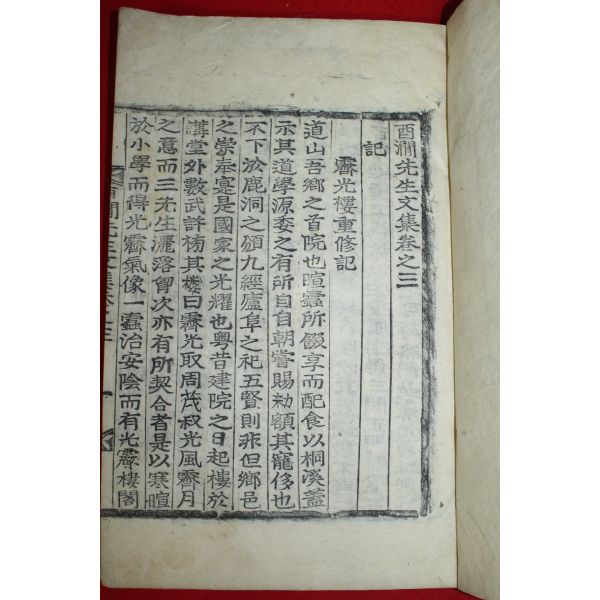 酉澗先生文集卷之三
記
霽光樓重修記
道山吾鄉之首院也暄蠹所餟享而配食以桐溪蓋
示其道學源委之有所自自朝嘗賜勑額其寵侈也
不下於鹿洞之頒九經廬阜之祀五賢則非但鄉邑
之崇奉寔是國家之光耀也粤昔建院之日起樓於
講堂外數武許楊其樓曰霽光取周茂叔光風霽月
之意而三先生灑落胷次亦有所契合者是以寒暄
於小學而得光霽氣像一蠹治安陰而有光霽樓閣